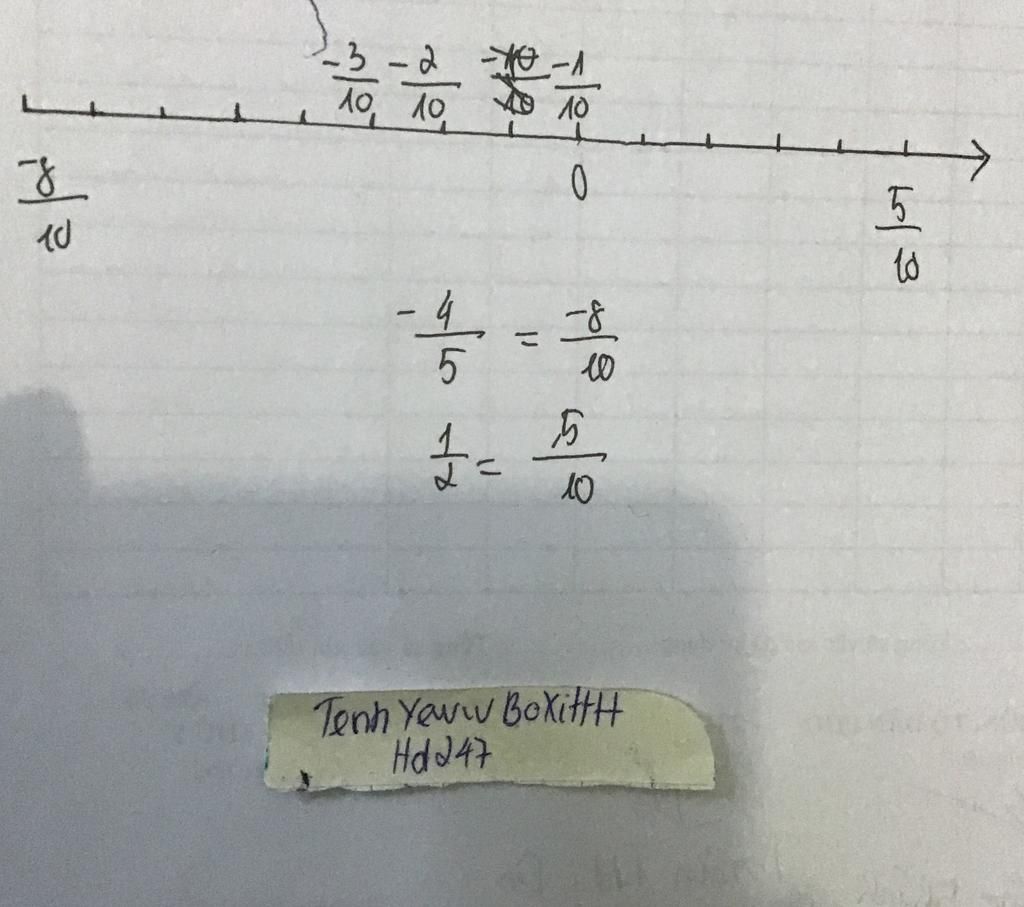 -3/10 -2/10 -1/10
-8/10 0 5/10
-4/5 = -8/10
1/2 = 5/10
Tenh Yavw BoXiHH
Hd247